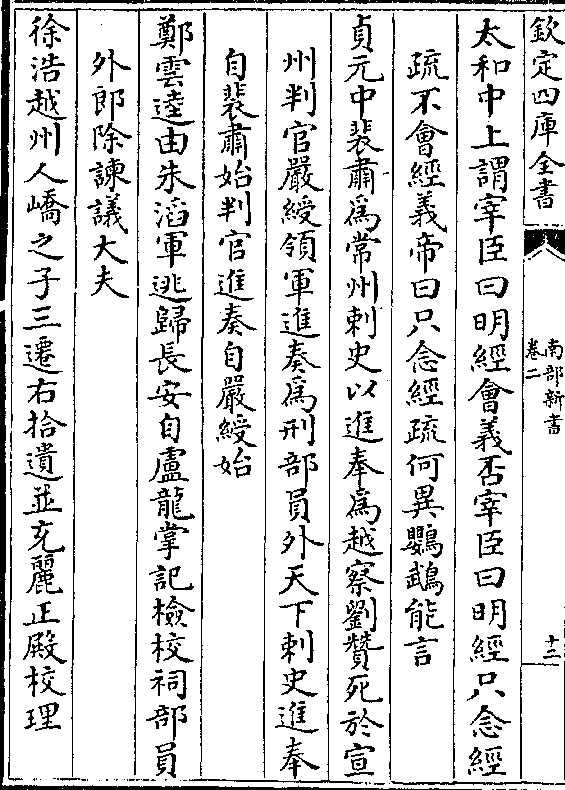 欽定四庫全書
南部新書
卷二
十三
太和中上謂宰臣曰明經會義否宰臣曰明經只念經
疏不會經義帝曰只念經疏何異鸚鵡能言
貞元中裴肅為常州刺史以進奉為越察劉贊死於宣
州判官嚴綬領軍進奏為刑部員外天下刺史進奉
自裴肅始判官進奏自嚴綬始
鄭雲逵由朱滔軍逃歸長安自盧龍掌記檢校祠部員
外郎除諫議大夫
徐浩越州人嶠之子三遷右拾遺並充麗正殿校理